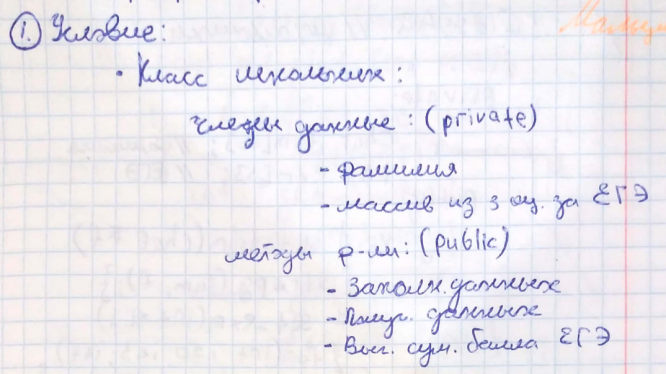 1. Условие:
• Класс школьник:
члены данные: (private)
- фамилия
- массив из 3 оц. за ЕГЭ
методы р-ли: (public)
- Заполн. данных
- Получ. данных
- Выч. сум. балла ЕГЭ